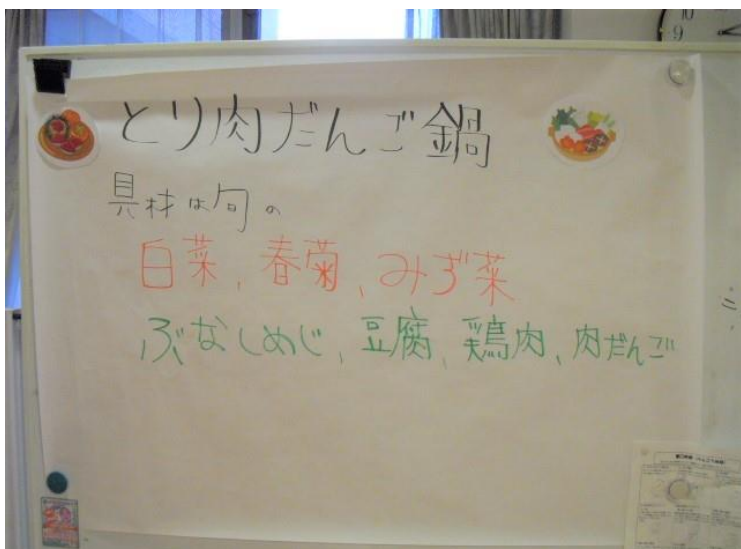 とり肉だんご鍋
具材は旬の
白菜、春菊、みず菜
ぶなしめじ、豆腐、鶏肉、肉だんご
10
9